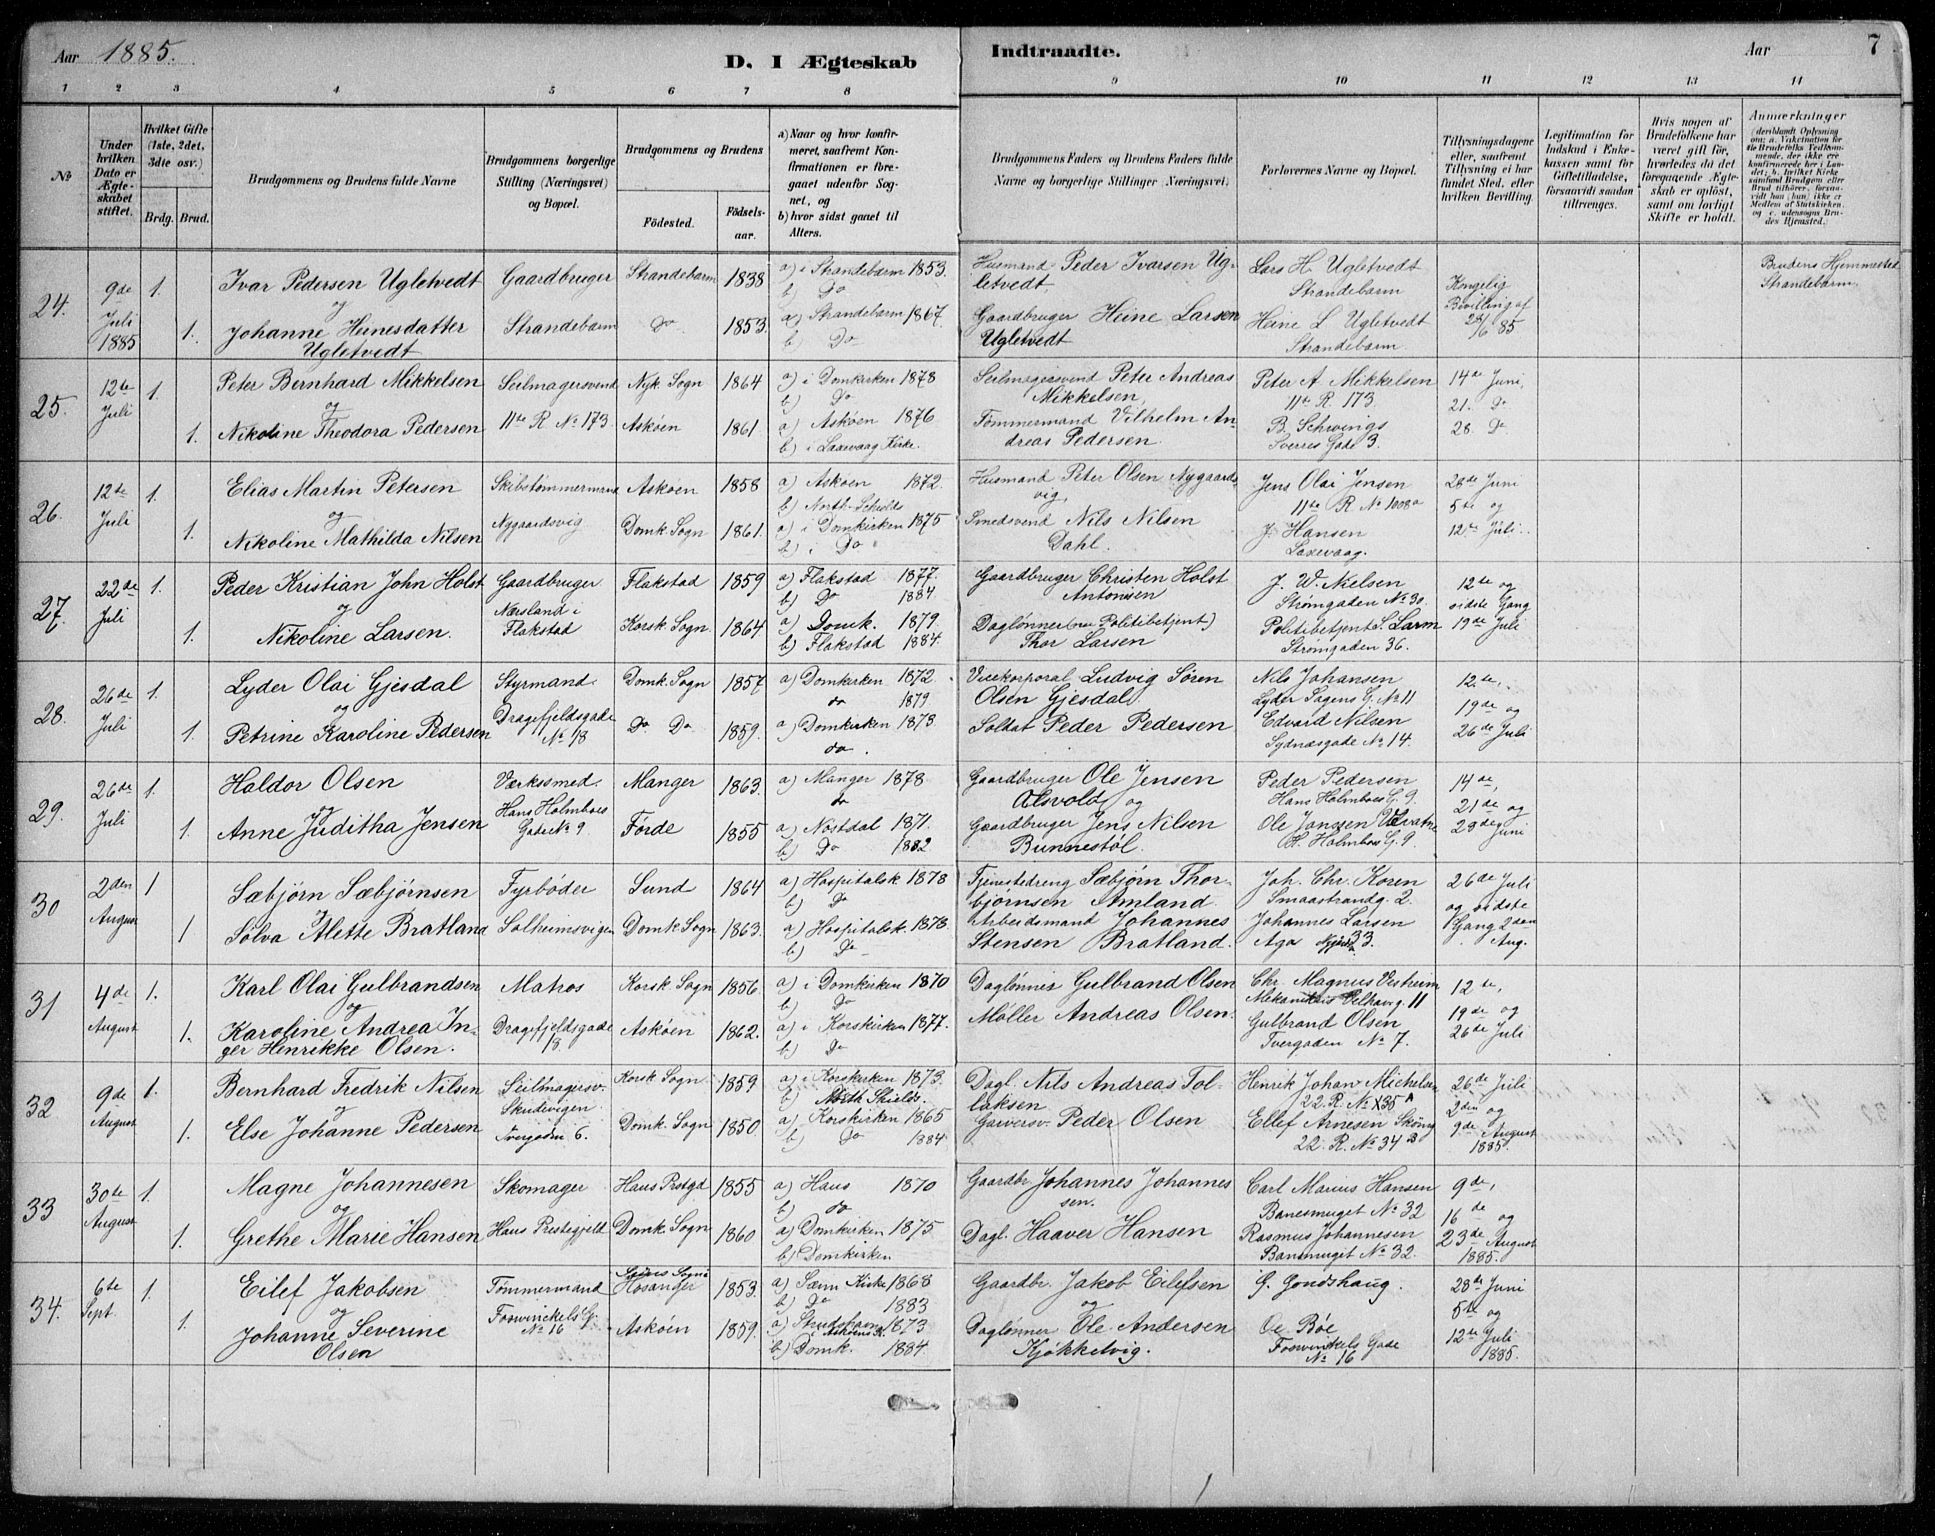 Aar 1885.
D. I Ægteskab
Indtraadte.
Aar
7
1 2 3 4 5 6 7 8 9 10 11 12 13 14
No
Under hvilken Dato er Ægteskabet stiftet.
Hvilket Gifte (1ste, 2det, 3die osv.)
Brdg. Brud.
Brudgommens og Brudens fulde Navne
Brudgommens borgerlige Stilling (Næringsvei) og Bopæl.
Brudgommens og Brudens
Födested.
Födselsaar.
a) Naar og hvor konfirmeret, saafremt Konfirmationen er foregaaet udenfor Sognet, og
b) hvor sidst gaaet til Alters.
Brudgommens Faders og Brudens Faders fulde Navne og borgerlige Stillinger (Næringsvei).
Forlovernes Navne og Bopæl.
Tillysningsdagene eller, saafremt Tillysning ei har fundet Sted, efter hvilken Bevilling.
Legitimation for Indskud i Enkekassen samt for Giftetilladelse, forsaavidt saadan tiltrænges.
Hvis nogen af Brudefolkene har været gift för, hvorledes da det foregaaende Ægteskab er oplöst, samt om lovligt Skifte er holdt.
Anmærkninger
24. 9de Juli 1885 1. 1.
Ivar Pedersen Ugletvedt
og
Johanne Heinesdatter
Ugletvedt
Gaardbruger
Strandebarm
Strandebarm 1838
Do 1853.
a) i Strandebarm 1853.
b) Do
a) Strandebarm 1867.
b) Do
Husmand Peder Ivarsen Ugletvedt
Gaardbruger Heine Larsen
Ugletvedt
Lars H. Ugletvedt
Strandebarm
Heine L Ugletvedt
Strandebarm.
Kongelig
Bevilling af
85
Brudens Hjemmested
Strandebarm.
25. 12te Juli 1. 1.
Peter Bernhard Mikkelsen
og
Nikoline Theodora Pedersen
Seilmagersvend
11te R No 173
Nyk. Sogn 1864
Askøen 1861
a) i Domkirken 1878
b) Do
a) Askøen 1876
b) i Laxevaag Kirke.
Seilmagersvend Peter Andreas
Mikkelsen,
Tømmermand Vilhelm Andreas Pedersen
Peter A Mikkelsen
11te R. 173
B. Schvings
Sverres Gade 3.
14de Juni,
21. Do
28. Do
26. 12te Juli 1. 1.
Elias Martin Petersen
og
Nikoline Mathilda Nilsen
Skibstømmermand
Nygaardsvig
Askøen 1858
Domk. Sogn 1861.
a) Askøen 1872.
b) North-Schields
a) i Domkirken 1875
b) i Do
Husmand Peter Olsen Nygaardsvig
Smedsvend Nils Nilsen
Dahl.
Jens Olai Jensen
11te R No 1008a
J. Hansen
Laxevaag.
28de Juni
5te og
12te Juli.
27. 22de Juli 1. 1.
Peder Kristian John Holst
og
Nikoline Larsen.
Gaardbruger
Næsland i
Flakstad
Flakstad 1859
Korsk. Sogn. 1864
a) Flakstad 1877.
b) Do 1884.
a) Domk. 1879.
b) Flakstad 1884.
Gaardbruger Christen Holst
Antonsen
Daglønner (nu Politibetjent)
Thor Larsen
J. W. Nielsen
Strømgaden No 30.
Politibetjent S. Larsen
Strømgaden 36.
12te og
sidste Gang
19de Juli
28. 26de Juli 1. 1.
Lyder Olai Gjesdal
og
Petrine Karoline Pedersen
Styrmand.
Dragefjeldsgade
No 18
Domk. Sogn 1857
Do Do 1859.
a) Domkirken 1872
do 1879
a) Domkirken 1873
do.
Vicekorporal Ludvig Søren
Olsen Gjesdal
Soldat Peder Pedersen
Nils Johansen
Lyder Sagens G. No 11
Edvard Nilsen
Sydnæsgade No 14.
12te,
19de og
26de Juli
29. 26de Juli 1. 1.
Haldor Olsen
og
Anne Juditha Jensen
Værkssmed.
Hans Holmboes
Gade No 9
Manger 1863.
Førde 1855
a) Manger 1878
do
a) Nostdal 1871.
b) Do 1882
Gaardbruger Ole Jensen
Alsvold og
Gaardbruger Jens Nilsen
Bunnestøl.
Peder Pedersen
Hans Holmboes G. 9.
Ole Janssen
H. Holmboes G. 9.
14de,
21de og
28de Juni
30 2den August 1 1
Sæbjörn Sæbjørnsen
Sølva Alette Bratland
Fyrbøder
Solheimsvigen
Sund 1864
Domk. Sogn 1863.
a) Hospitalsk 1878
b) Do
a) Hospitalsk 1878
b) Do
Tjenestedreng Sæbjørn Thorbjørnsen Amland
Arbeidsmand Johannes
Stensen Bratland.
Joh. Chr. Koren
Smaastrandg. 2.
Johannes Larsen
Aga 33.
26de Juli
og sidste
Gang 2den
Aug.
31 4de August 1. 1.
Karl Olai Gulbrandsen
og
Karoline Andrea Inger Henrikke Olsen.
Matros
Dragefjeldsgade
18.
Korsk Sogn 1856.
Askøen 1862.
a) i Domkirken 1870
b) Do
a) i Korskirken 1877.
b) Do
Daglønnes Gulbrand Olsen
Møller Andreas Olsen.
Chr. Magnus
11
Gulbrand Olsen
Tvergaden No 7.
12te,
19de og
26de Juli
32 9de August 1. 1.
Bernhard Fredrik Nilsen
og
Else Johanne Pedersen
Seilmagersv.
Skudevigen.
Tvergaden 6.
Korsk. Sogn 1859
Domk. Sogn 1850
a) i Korskirken 1873.
b) North Shields.
a) Korskirken 1865
b) Do 1884.
Dagl. Nils Andreas Tollaksen
Garversv. Peder Olsen
Henrik Johan Michelsen
22. R. No
Ellef Arnesen
22. R. No 34
26de Juli
2den og
9de August
1885.
33 30te August 1. 1.
Magne Johannesen
og
Grethe Marie Hansen
Skomager
Haus Prestegjeld
Haus Prstgd 1855
Domk. Sogn 1860
a) Haus 1870
b) do
a) Domkirken 1875
b) Domkirken
Gaardbr Johannes Johannessen.
Dagl. Haaver Hansen
Carl Marius Hansen
Banesmuget No 32
Rasmus Johannesen
Banesmuget No 32.
9de,
16de og
23de August
1885.
34. 6te Sept. 1. 1.
Eilef Jakobsen
og
Johanne Severine
Olsen
Tømmermand
Foswinckels G.
No 16
Hosanger 1853.
Askøen 1859.
a) Sæm Kirke 1868
b) Do 1883
a) 1873
b) Domk. 1884.
Gaardbr. Jakob Eilefsen
og
Daglønner Ole Andersen
Kjøkkelvig.
G. Gondshaug.
Oe Bøe
Foswinckels Gade
No 16
28de Juni
5te og
12te Juli
1885.